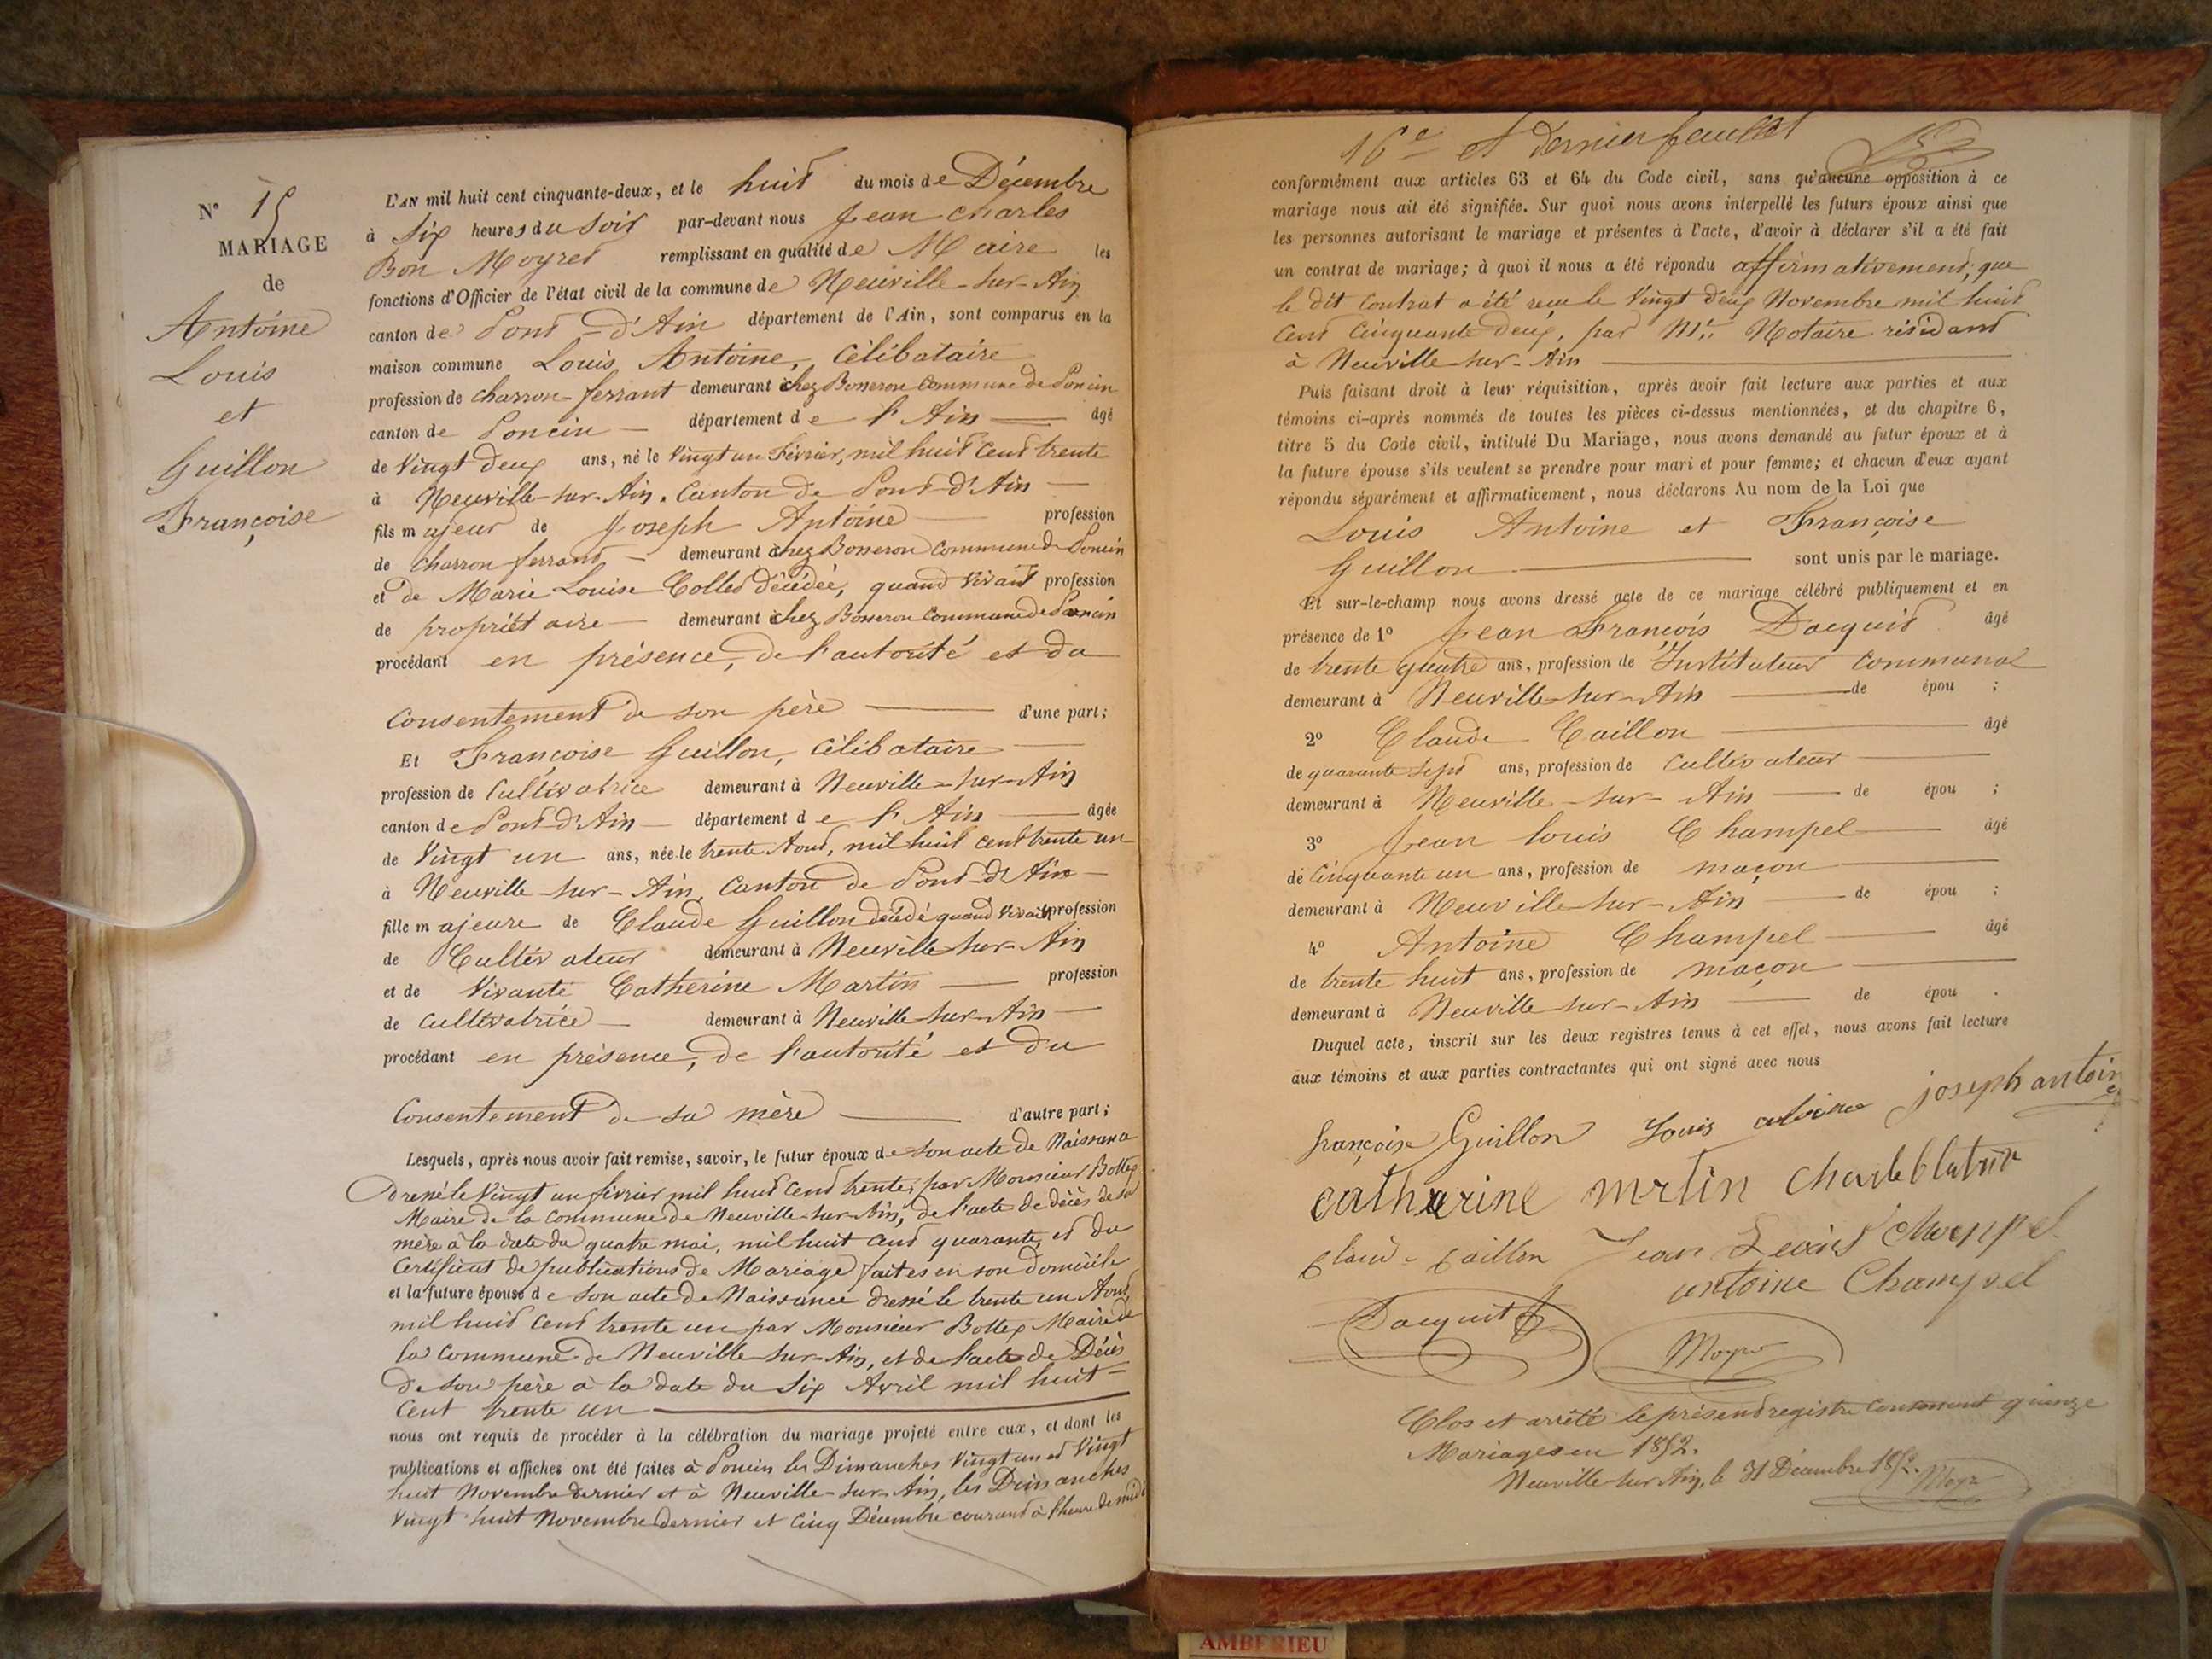 N° 15
MARIAGE
de
Antoine
Louis
et
Guillon
Françoise
L'AN mil huit cent cinquante-deux, et le huit du mois de Décembre
à Six heures du Soir par-devant nous Jean Charles
Bon Moyret remplissant en qualité de Maire les
fonctions d'Officier de l'état civil de la commune de Neuville-sur-Ain
canton de Pont-d'Ain département de l'Ain, sont comparus en la
maison commune Louis Antoine, Célibataire
profession de charron-ferrant demeurant à chez Bosseron Commune de Poncin
canton de Poncin département de l'Ain âgé
de Vingt deux ans, né le Vingt un Février, mil huit Cent trente
à Neuville-sur-Ain, Canton de Pont-d'Ain
fils majeur de Joseph Antoine profession
de charron ferrant demeurant à chez Bosseron Commune de Poncin
et de Marie Louise Collet décédée, quand vivait profession
de propriétaire demeurant à chez Bosseron Commune de Poncin
procédant en présence, de l'autorité et du
Consentement de son père d'une part;
Et Françoise Guillon, Célibataire
profession de Cultivatrice demeurant à Neuville-sur-Ain
canton de Pont-d'Ain département de l'Ain âgée
de Vingt un ans, née le trente Aout, mil huit cent trente un
à Neuville-sur-Ain, Canton de Pont-d'Ain
fille majeure de Claude Guillon décédé quand vivait profession
de Cultivateur demeurant à Neuville-sur-Ain
et de vivante Catherine Martin profession
de Cultivatrice demeurant à Neuville-sur-Ain
procédant en présence, de l'autorité et du
Consentement de sa mère d'autre part;
Lesquels, après nous avoir fait remise, savoir, le futur époux de son acte de Naissance
dressé le Vingt un février mil huit Cent trente, par Monsieur Bottex
Maire de la Commune de Neuville-sur-Ain, de l'acte de décès de sa
mère à la date du quatre mai, mil huit cent quarante, et du
Certificat de publications de Mariage faites en son domicile
et la future épouse de Son acte de Naissance dressé le trente un Aout
mil huit Cent trente un par Monsieur Bottex Maire de
la Commune de Neuville-sur-Ain, et de l'acte de Décès
de son père à la date du Six Avril mil huit
Cent trente un
nous ont requis de procéder à la célébration du mariage projeté entre eux, et dont les
publications et affiches ont été faites à Poncin les Dimanches Vingt un et Vingt
huit Novembre dernier et à Neuville-sur-Ain, les Dimanches
Vingt huit Novembre dernier et Cinq Décembre courant à l'heure de midi
16e et dernier feuillet
conformément aux articles 63 et 64 du Code civil, sans qu'aucune opposition à ce
mariage nous ait été signifiée. Sur quoi nous avons interpellé les futurs époux ainsi que
les personnes autorisant le mariage et présentes à l'acte, d'avoir à déclarer s'il a été fait
un contrat de mariage; à quoi il nous a été répondu affirmativement, que
le dit Contrat a été reçu le Vingt deux Novembre mil huit
Cent Cinquante deux, par Me Notaire résidant
à Neuville-sur-Ain
Puis faisant droit à leur réquisition, après avoir fait lecture aux parties et aux
témoins ci-après nommés de toutes les pièces ci-dessus mentionnées, et du chapitre 6,
titre 5 du Code civil, intitulé Du Mariage, nous avons demandé au futur époux et à
la future épouse s'ils veulent se prendre pour mari et pour femme; et chacun d'eux ayant
répondu séparément et affirmativement, nous déclarons Au nom de la Loi que
Louis Antoine et Françoise
Guillon sont unis par le mariage.
Et sur-le-champ nous avons dressé acte de ce mariage célébré publiquement et en
présence de 1° Jean François Dacquit âgé
de trente quatre ans, profession de Instituteur Communal
demeurant à Neuville-sur-Ain de épou ;
2° Claude Caillon âgé
de quarante sept ans, profession de Cultivateur
demeurant à Neuville-sur-Ain de épou ;
3° Jean louis Champel âgé
de Cinquante un ans, profession de maçon
demeurant à Neuville-sur-Ain de épou ;
4° Antoine Champel âgé
de trente huit ans, profession de maçon
demeurant à Neuville-sur-Ain de épou .
Duquel acte, inscrit sur les deux registres tenus à cet effet, nous avons fait lecture
aux témoins et aux parties contractantes qui ont signé avec nous
françoise Guillon Louis antoine joseph antoine
catherine mrtin
Jean Louis Champel
antoine Champel
Dacquit
Moyret
Clos et arrêté le présent registre contenant quinze
Mariages en 1852.
Neuville-sur-Ain, le 31 Décembre 1852.
AMBERIEU